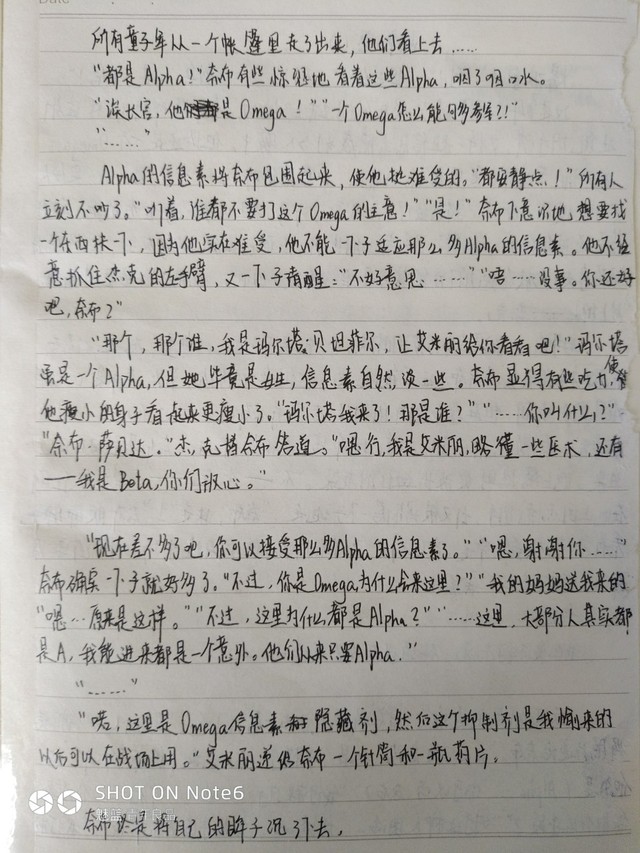 Date
所有童子军从一个帐篷里走了出来，他们看上去……
"都是Alpha！"奈布有些惊恐地看着这些Alpha，咽了咽口水。
"涘长官，他是Omega！""一个Omega怎么能够参军？！"
"……"
Alpha的信息素将奈布包围起来，使他挺难受的。"都安静点！"所有人
立刻不吵了。"听着，谁都不要打这个Omega的主意！""是！"奈布下意识地想要找
一个东西扶一下，因为他实在难受，他不能一下子适应那么多Alpha的信息素。他不经
意抓住杰克的左手臂，又一下子清醒："不好意思……""唔……没事。你还好
吧，奈布？"
"那个，那个谁，我是玛尔塔·贝坦菲尔，让艾米丽给你看看吧！"玛尔塔
虽是一个Alpha，但她毕竟是女性，信息素自然淡一些。奈布显得有些吃力，使
他瘦小的身子看起来更瘦小了。"玛尔塔我来了！那是谁？""……你叫什么？"
"奈布·萨贝达。"杰克替奈布答道。"嗯行，我是艾米丽，略懂一些医术，还有
——我是Beta，你们放心。"
"现在差不多了吧，你可以接受那么多Alpha的信息素了。""嗯，谢谢你……"
奈布确实一下子就好多了。"不过，你是Omega，为什么会来这里？""我的妈妈送我来的
"嗯…原来是这样。""不过，这里为什么都是Alpha？""……这里，大部分人其实都
是A，我能进来都是一个意外。他们从来只要Alpha。"
"……"
"喏，这里是Omega信息素隐藏剂，然后这个抑制剂是我偷来的
以后可以在战场上用。"艾米丽递给奈布一个针筒和一瓶药片。
奈布终是将自己的眸子沉了下去，
SHOT ON Note6